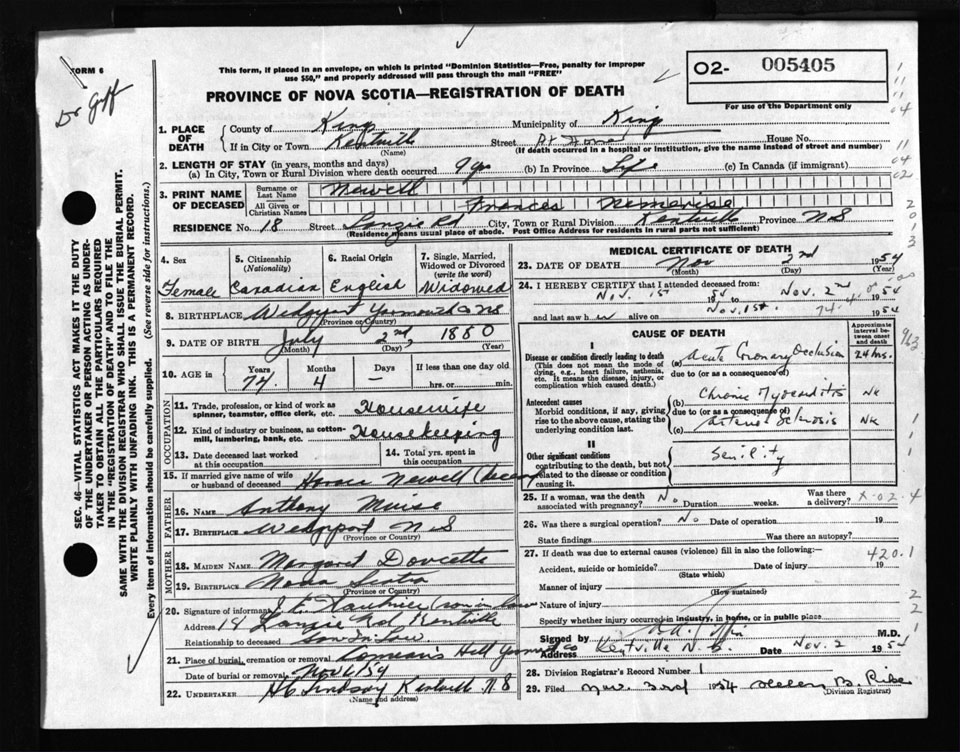 FORM 6
Dr Giff
This form, if placed in an envelope, on which is printed "Dominion Statistics—Free, penalty for improper
use $50," and properly addressed will pass through the mail "FREE"
02- 005405
For use of the Department only
PROVINCE OF NOVA SCOTIA—REGISTRATION OF DEATH
1. PLACE OF DEATH
County of Kings Municipality of Kings
If in City or Town Kentville Street At Home House No.
(Name) (If death occurred in a hospital or institution, give the name instead of street and number)
2. LENGTH OF STAY (in years, months and days)
(a) In City, Town or Rural Division where death occurred 9 yrs (b) In Province Life (c) In Canada (if immigrant)
3. PRINT NAME OF DECEASED
Surname or Last Name Newell
All Given or Christian Names Frances
RESIDENCE No. 18 Street Lanzie Rd City, Town or Rural Division Kentville Province N S
(Residence means usual place of abode. Post Office Address for residents in rural parts not sufficient)
4. Sex Female
5. Citizenship (Nationality) Canadian
6. Racial Origin English
7. Single, Married, Widowed or Divorced (write the word) Widowed
8. BIRTHPLACE Wedgeport Yarmouth Co NS
(Province or Country)
9. DATE OF BIRTH July 2nd, 1880
(Month) (Day) (Year)
10. AGE in Years 74 Months 4 Days — If less than one day hrs. or min.
OCCUPATION
11. Trade, profession, or kind of work as spinner, teamster, office clerk, etc. Housewife
12. Kind of industry or business, as cotton-mill, lumbering, bank, etc. Housekeeping
13. Date deceased last worked at this occupation
14. Total yrs. spent in this occupation
15. If married give name of wife or husband of deceased Horace Newell
FATHER
16. NAME Anthony Muise
17. BIRTHPLACE Wedgeport N S
(Province or Country)
MOTHER
18. MAIDEN NAME Margaret Doucette
19. BIRTHPLACE Nova Scotia
(Province or Country)
20. Signature of informant (son in law
Address 18 Lanzie Rd Kentville
Relationship to deceased Son In Law
21. Place of burial, cremation or removal Comeau's Hill Yarmouth Co
Date of burial or removal Nov 4/54
22. UNDERTAKER H C Lindsay Kentville N S
(Name and address)
MEDICAL CERTIFICATE OF DEATH
23. DATE OF DEATH Nov 2nd 1954
(Month) (Day) (Year)
24. I HEREBY CERTIFY that I attended deceased from
Nov. 1st 1954 to Nov. 2nd 1954
and last saw her alive on Nov. 1st. 1954
74-4-0
CAUSE OF DEATH
Approximate interval between onset and death
I
Disease or condition directly leading to death
(This does not mean the mode of dying, e.g., heart failure, asthenia, etc. It means the disease, injury, or complication which caused death.)
(a) Acute Coronary Occlusion 24 hrs.
due to (or as a consequence of)
Antecedent causes
Morbid conditions, if any, giving rise to the above cause, stating the underlying condition last.
(b) Chronic Myocarditis NK
due to (or as a consequence of)
(c) Arterio sclerosis NK
II
Other significant conditions
contributing to the death, but not related to the disease or condition causing it.
Senility
25. If a woman, was the death associated with pregnancy? No Duration weeks. Was there a delivery?
X-02-4
26. Was there a surgical operation? No Date of operation 19
State findings Was there an autopsy?
27. If death was due to external causes (violence) fill in also the following:—
420.1
Accident, suicide or homicide? Date of injury 19
(State which)
Manner of injury
(How sustained)
Nature of injury
Specify whether injury occurred in industry, in home, or in public place
Signed by M.D.
Address Kentville N. S. Date Nov. 2 1954
28. Division Registrar's Record Number 1
29. Filed Nov. 3rd 1954 Helen B.
(Division Registrar)
SEC. 46—VITAL STATISTICS ACT MAKES IT THE DUTY
OF THE UNDERTAKER OR PERSON ACTING AS UNDER-
TAKER TO OBTAIN ALL THE PARTICULARS REQUIRED
IN THE "REGISTRATION OF DEATH" AND TO FILE THE
SAME WITH THE DIVISION REGISTRAR WHO SHALL ISSUE THE BURIAL PERMIT.
WRITE PLAINLY WITH UNFADING INK. THIS IS A PERMANENT RECORD.
Every item of information should be carefully supplied. (See reverse side for instructions.)